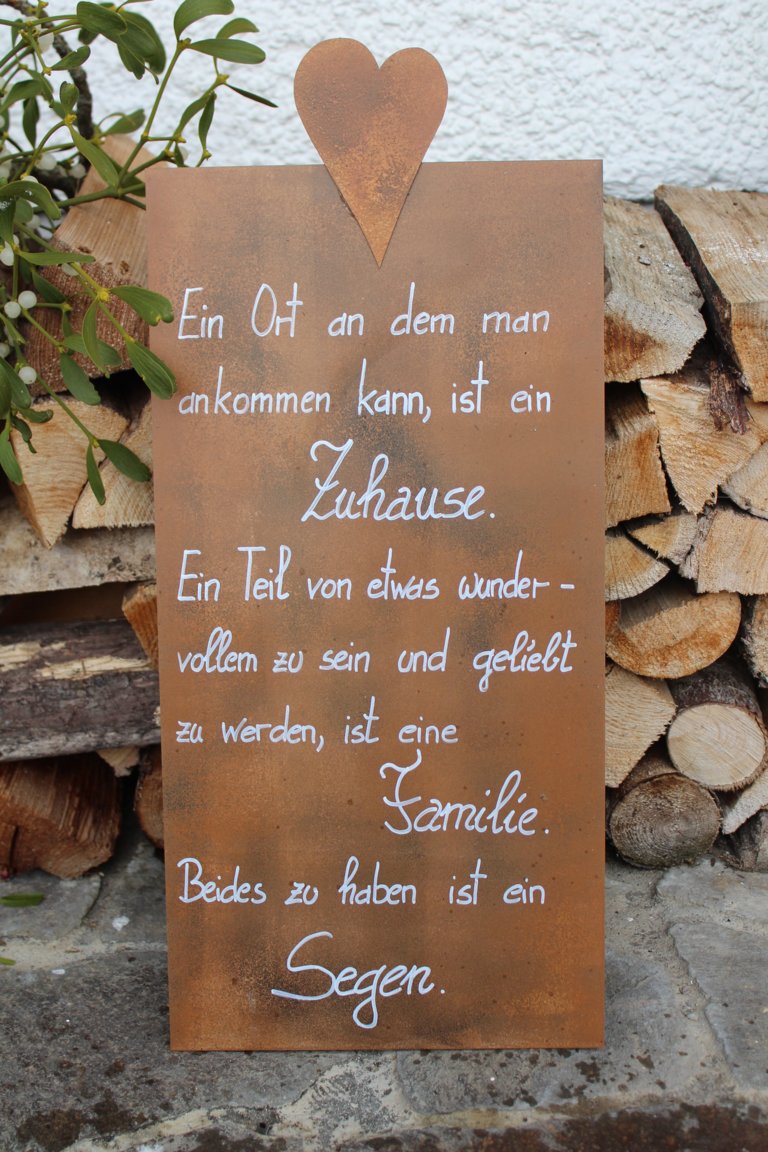 Ein Ort an dem man
ankommen kann, ist ein
Zuhause.
Ein Teil von etwas wunder-
vollem zu sein und geliebt
zu werden, ist eine
Familie.
Beides zu haben ist ein
Segen.